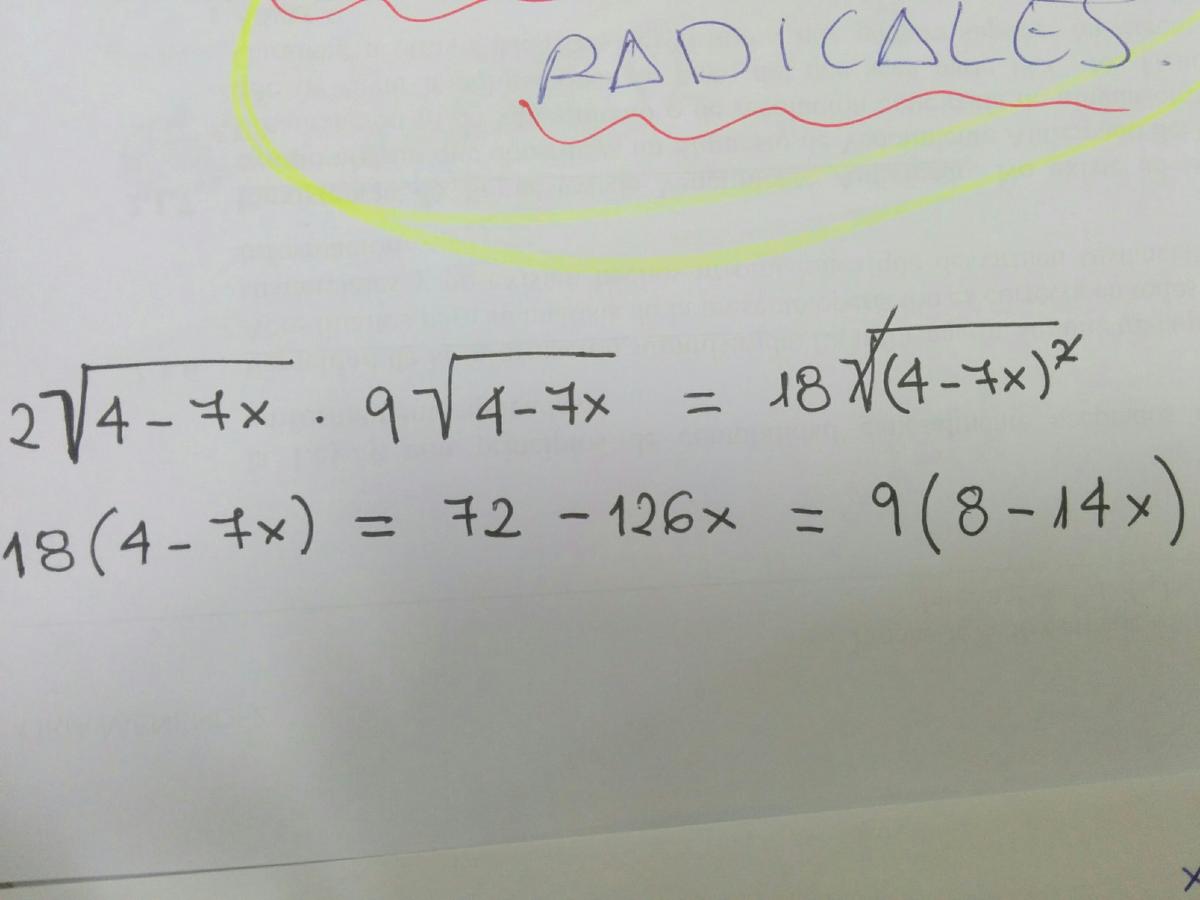 RADICALES.
2√(4-7x) · 9√(4-7x) = 18√(4-7x)²
18(4-7x) = 72 - 126x = 9(8-14x)
x